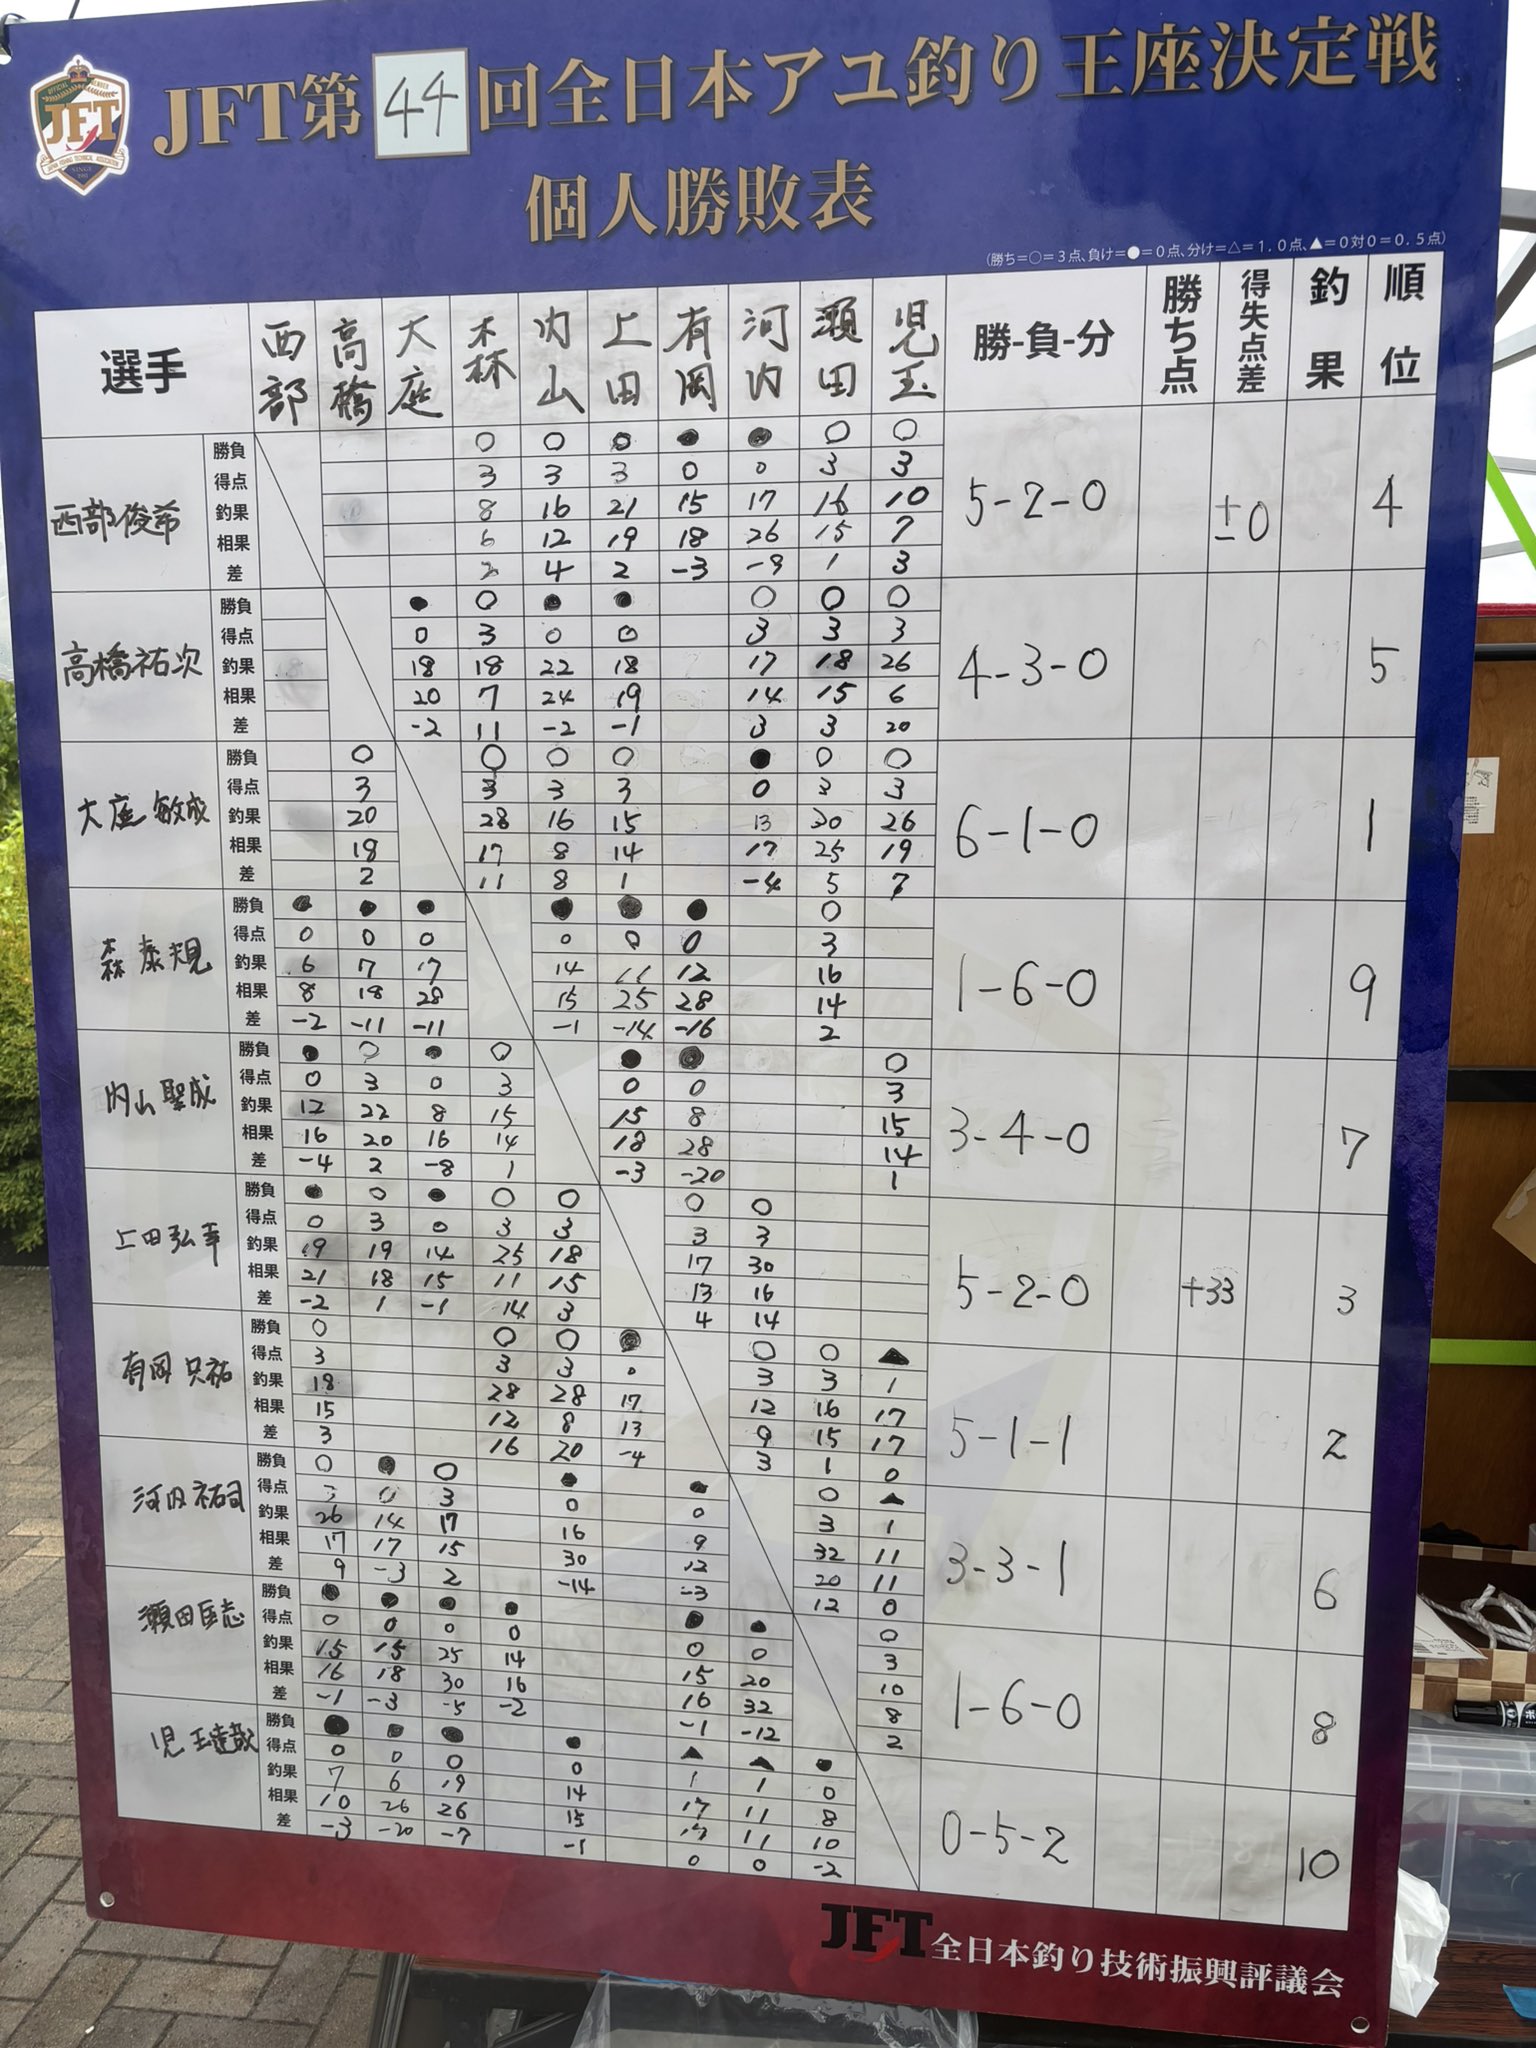 JFT第44回全日本アユ釣り王座決定戦
個人勝敗表
(勝ち=○=3点、負け=●=0点、分け=△=1.0点、▲=0対0=0.5点)
選手 西部 高橋 大庭 森 内山 上田 有岡 河内 瀬田 児玉 勝-負-分 勝ち点 得失点差 釣果 順位
西部俊希 5-2-0 ±0 4
勝負 ○ ○ ○ ● ● ○ ○
得点 3 3 3 0 0 3 3
釣果 8 16 21 15 17 16 10
相果 6 12 19 18 26 15 7
差 2 4 2 -3 -9 1 3
高橋祐次 4-3-0 5
勝負 ● ○ ● ● ○ ○ ○
得点 0 3 0 0 3 3 3
釣果 18 18 22 18 17 18 26
相果 20 7 24 19 14 15 6
差 -2 11 -2 -1 3 3 20
大庭敏成 6-1-0 1
勝負 ○ ○ ○ ○ ● ○ ○
得点 3 3 3 3 0 3 3
釣果 20 28 16 15 13 30 26
相果 18 17 8 14 17 25 19
差 2 11 8 1 -4 5 7
森泰規 1-6-0 9
勝負 ● ● ● ● ● ● ○
得点 0 0 0 0 0 0 3
釣果 6 7 17 14 11 12 16
相果 8 18 28 15 25 28 14
差 -2 -11 -11 -1 -14 -16 2
内山聖成 3-4-0 7
勝負 ● ○ ● ○ ● ● ○
得点 0 3 0 3 0 0 3
釣果 12 22 8 15 15 8 15
相果 16 20 16 14 18 28 14
差 -4 2 -8 1 -3 -20 1
上田弘幸 5-2-0 +33 3
勝負 ● ○ ● ○ ○ ○ ○
得点 0 3 0 3 3 3 3
釣果 19 19 14 25 18 17 30
相果 21 18 15 11 15 13 16
差 -2 1 -1 14 3 4 14
有岡只祐 5-1-1 2
勝負 ○ ○ ○ ● ○ ○ ▲
得点 3 3 3 0 3 3 1
釣果 18 28 28 17 12 16 17
相果 15 12 8 13 9 15 17
差 3 16 20 -4 3 1 0
河内祐司 3-3-1 6
勝負 ○ ● ○ ● ● ○ ▲
得点 3 0 3 0 0 3 1
釣果 26 14 17 16 9 32 11
相果 17 17 15 30 12 20 11
差 9 -3 2 -14 -3 12 0
瀬田匡志 1-6-0 8
勝負 ● ● ● ● ● ● ○
得点 0 0 0 0 0 0 3
釣果 15 15 25 14 15 20 10
相果 16 18 30 16 16 32 8
差 -1 -3 -5 -2 -1 -12 2
児玉達哉 0-5-2 10
勝負 ● ● ● ● ▲ ▲ ●
得点 0 0 0 0 1 1 0
釣果 7 6 19 14 17 11 8
相果 10 26 26 15 17 11 10
差 -3 -20 -7 -1 0 0 -2
JFT全日本釣り技術振興評議会